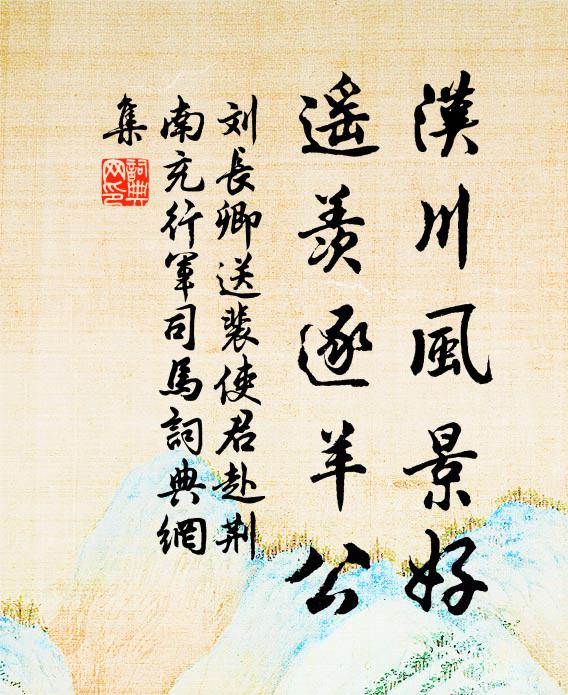 漢川風景好
遥羨逐羊公
刘長卿送裴使君赴荆
南充行軍司馬詞典網
集
詞典网印